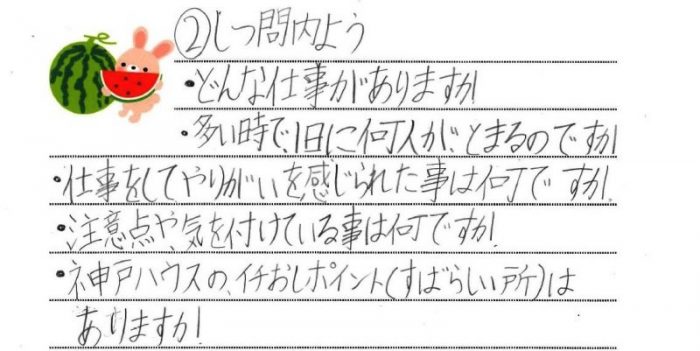 ②しつ問内よう
・どんな仕事がありますか
・多い時で、1日に何人が、とまるのですか
・仕事をしてやりがいを感じられた事は何ですか。
・注意点や、気を付けている事は何ですか。
・神戸ハウスの、イチおしポイント(すばらしい所)は
ありますか。